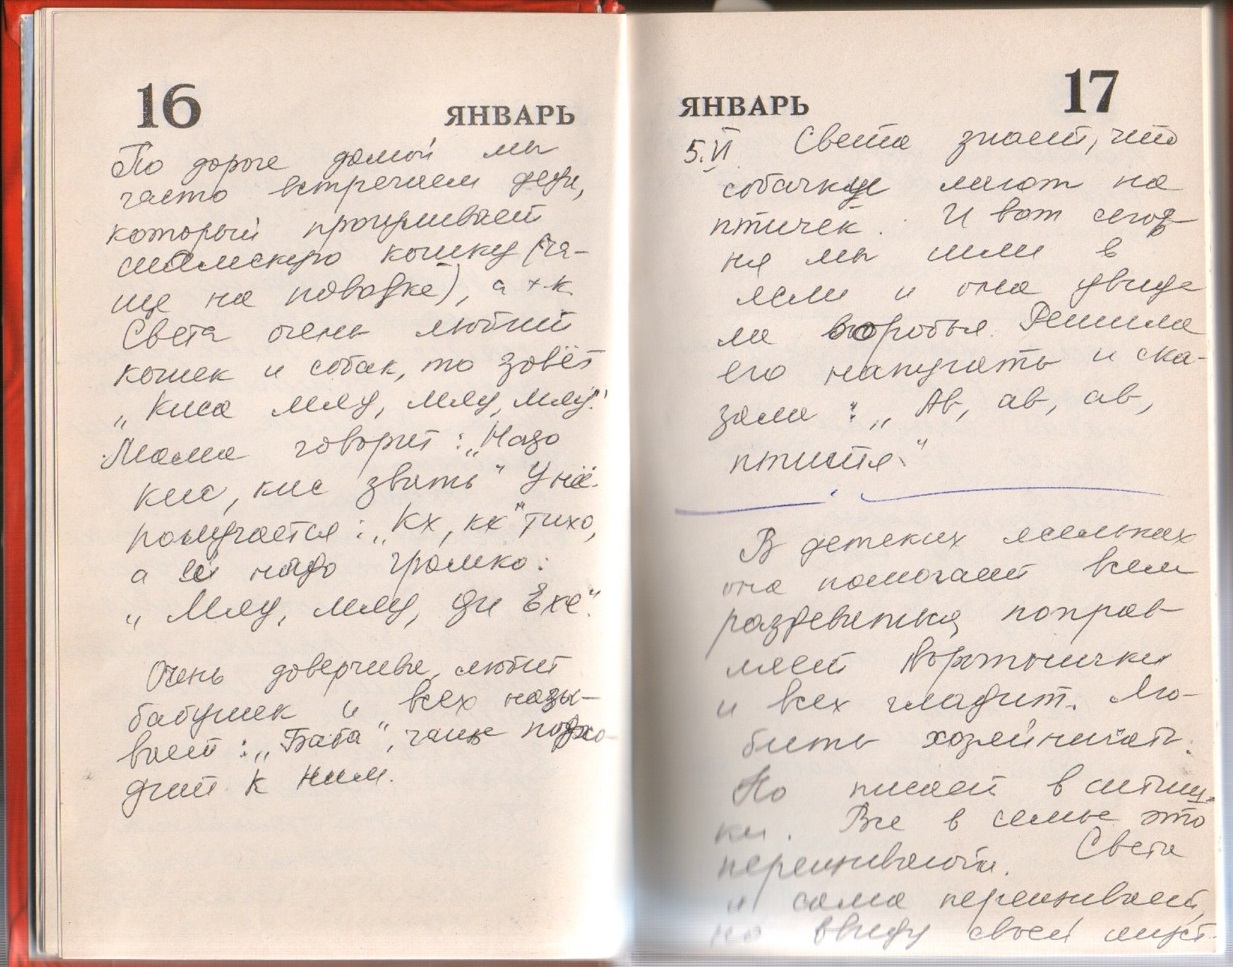 16 ЯНВАРЬ
По дороге домой мы
часто встречаем деда,
который прогуливает
сиамскую кошку (ча-
ще на поводке), а т.к.
Света очень любит
кошек и собак, то зовёт
„Киса мяу, мяу, мяу."
Мама говорит: „Надо
кис, кис звать" У неё
получается: „Кх, кх" тихо,
а ей надо громко:
„Мяу, мяу, ди
Очень доверчива, любит
бабушек и всех назы-
вает: „Баба", подхо-
дит к ним.
ЯНВАРЬ 17
5.VI Света знает, что
собачки лают на
птичек. И вот сегод-
ня мы шли в
ясли и она увиде
ла воробья. Решила
его напугать и ска-
зала: „Ав, ав, ав,
птитя."
В детских ясельках
она помогает всем
раздеваться, поправ-
ляет воротнички
и всех гладит. Лю-
бить хозяйничать.
Но писает в штаниш-
ки. Все в семье это
переживают. Света
и сама переживает,
но ввиду своей